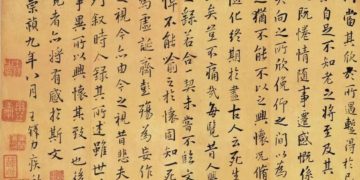 當其欣於所遇輒得於己
自足不知老之將至
既倦情隨事遷感慨係
矣向之所欣俛仰之間以為
猶不能不以之興懷況脩
隨化終期於盡古人云死生
矣豈不痛哉每覽昔人興
之由若合一契未嘗不臨文
悼不能喻之於懷固知一死
為虛誕齊彭殤為妄作
視今亦由今之視昔悲夫
列敘時人錄其所述雖世
事異所以興懷其致一也後
覽者亦將有感於斯文
崇禎九年八月 王鐸力疾